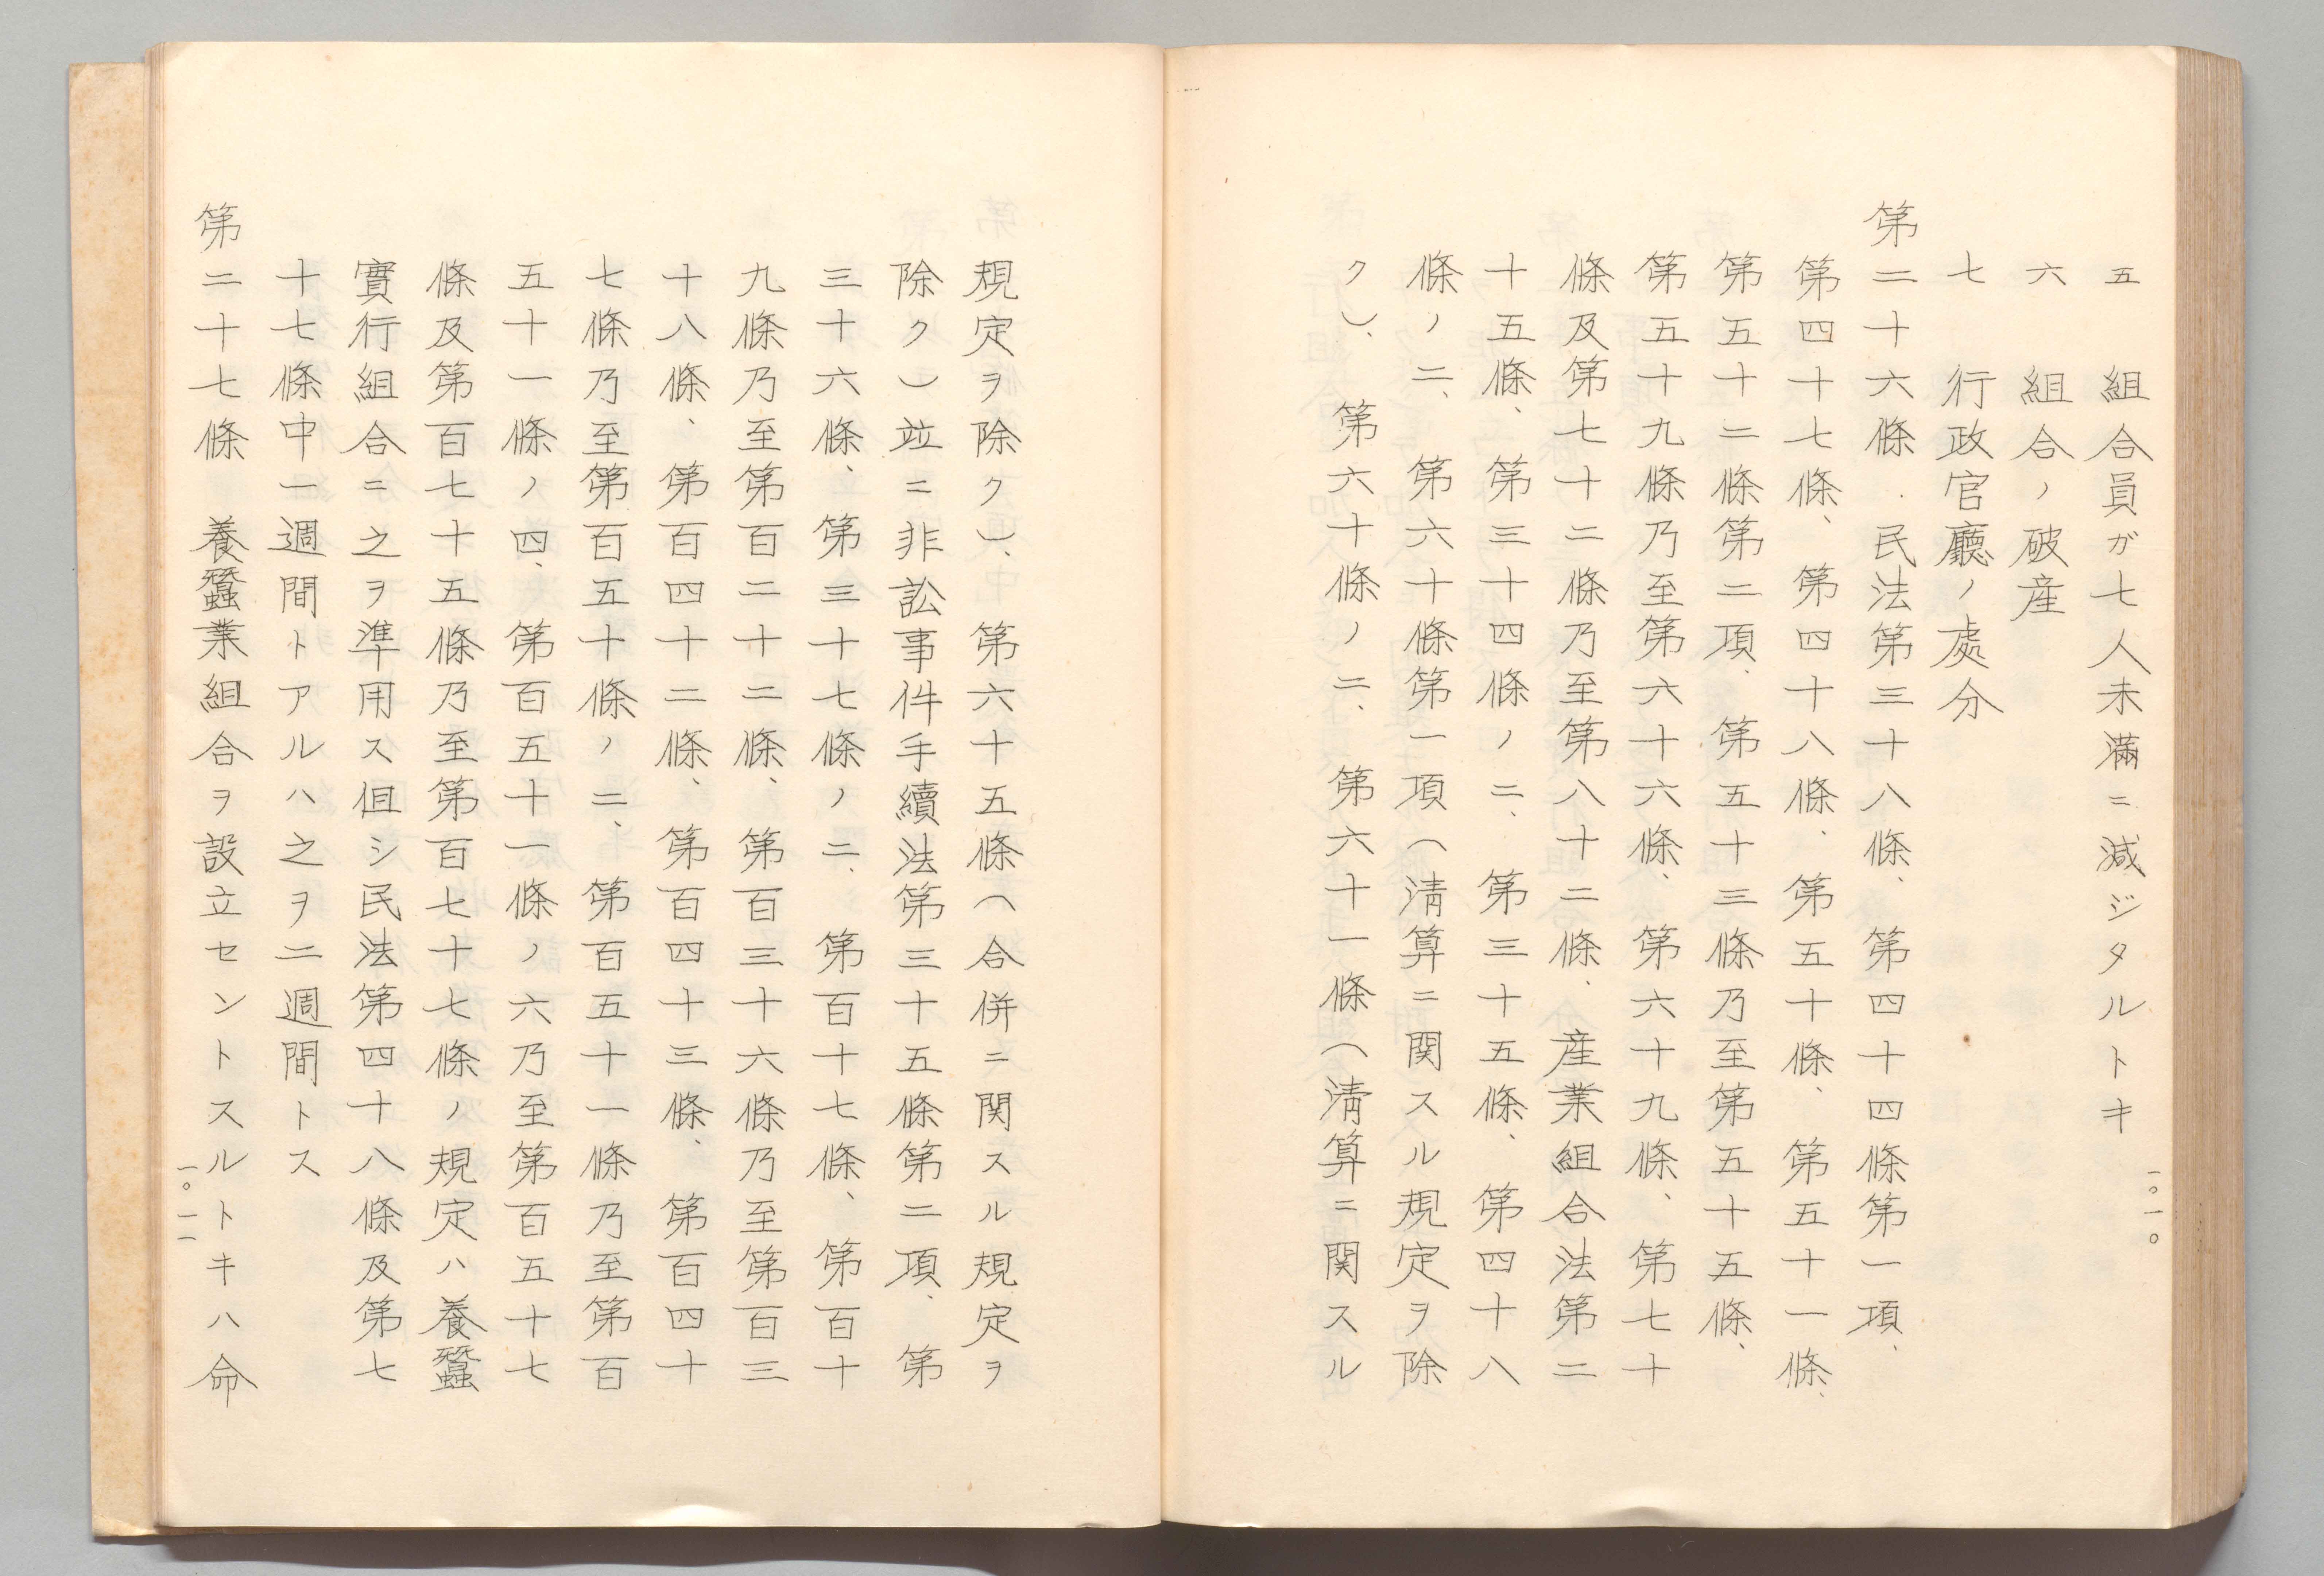 五　組合員ガ七人未滿ニ減ジタルトキ
六　組合ノ破産
七　行政官廳ノ處分
第二十六條　民法第三十八條、第四十四條第一項、
第四十七條、第四十八條、第五十條、第五十一條、
第五十二條第二項、第五十三條乃至第五十五條、
第五十九條乃至第六十六條、第六十九條、第七十
條及第七十二條乃至第八十二條、産業組合法第二
十五條、第三十四條ノ二、第三十五條、第四十八
條ノ二、第六十條第一項（淸算ニ関スル規定ヲ除
ク）、第六十條ノ二、第六十一條（淸算ニ関スル
一〇一〇
規定ヲ除ク）、第六十五條（合併ニ関スル規定ヲ
除ク）竝ニ非訟事件手續法第三十五條第二項、第
三十六條、第三十七條ノ二、第百十七條、第百十
九條乃至第百二十二條、第百三十六條乃至第百三
十八條、第百四十二條、第百四十三條、第百四十
七條乃至第百五十條ノ二、第百五十一條乃至第百
五十一條ノ四、第百五十一條ノ六乃至第百五十七
條及第百七十五條乃至第百七十七條ノ規定ハ養蠶
實行組合ニ之ヲ準用ス但シ民法第四十八條及第七
十七條中一週間トアルハ之ヲ二週間トス
第二十七條　養蠶業組合ヲ設立セントスルトキハ命
一〇一一